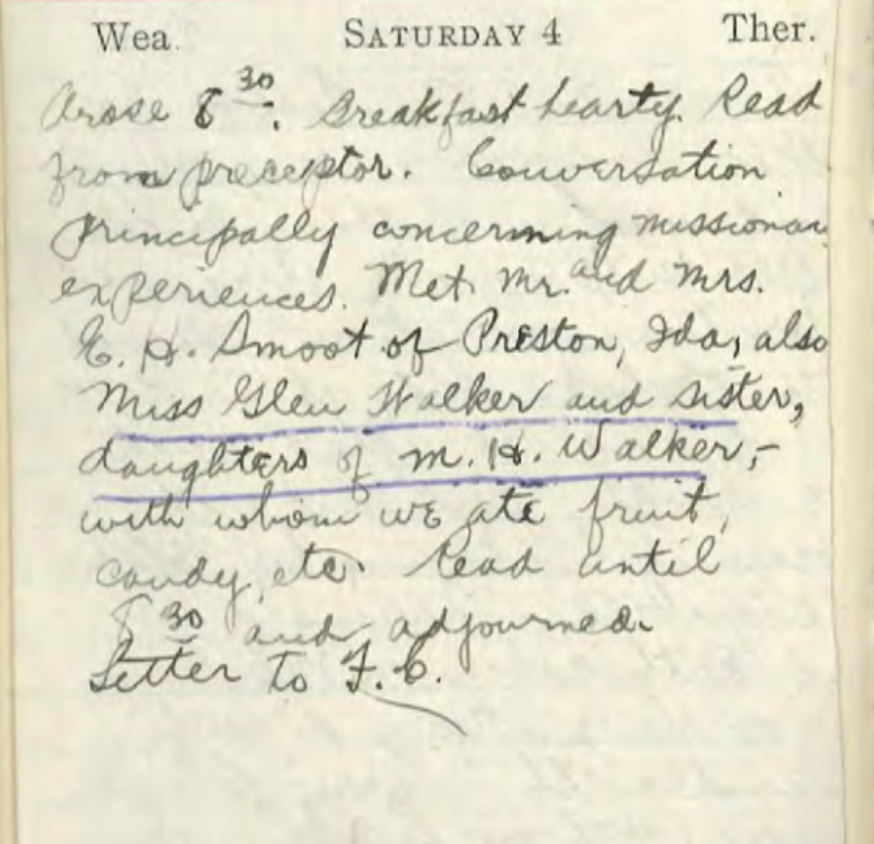 Wea. SATURDAY 4 Ther.
Arose 8 30. Breakfast hearty. Read
from preceptor. Conversation
principally concerning missionary
experiences. Met Mr. and Mrs.
E. H. Smoot of Preston, Ida, also
Miss Glen Walker and sister,
daughters of M. H. Walker,-
with whom we ate fruit,
candy, etc. Read until
8 30 and adjourned.
Letter to F.C.